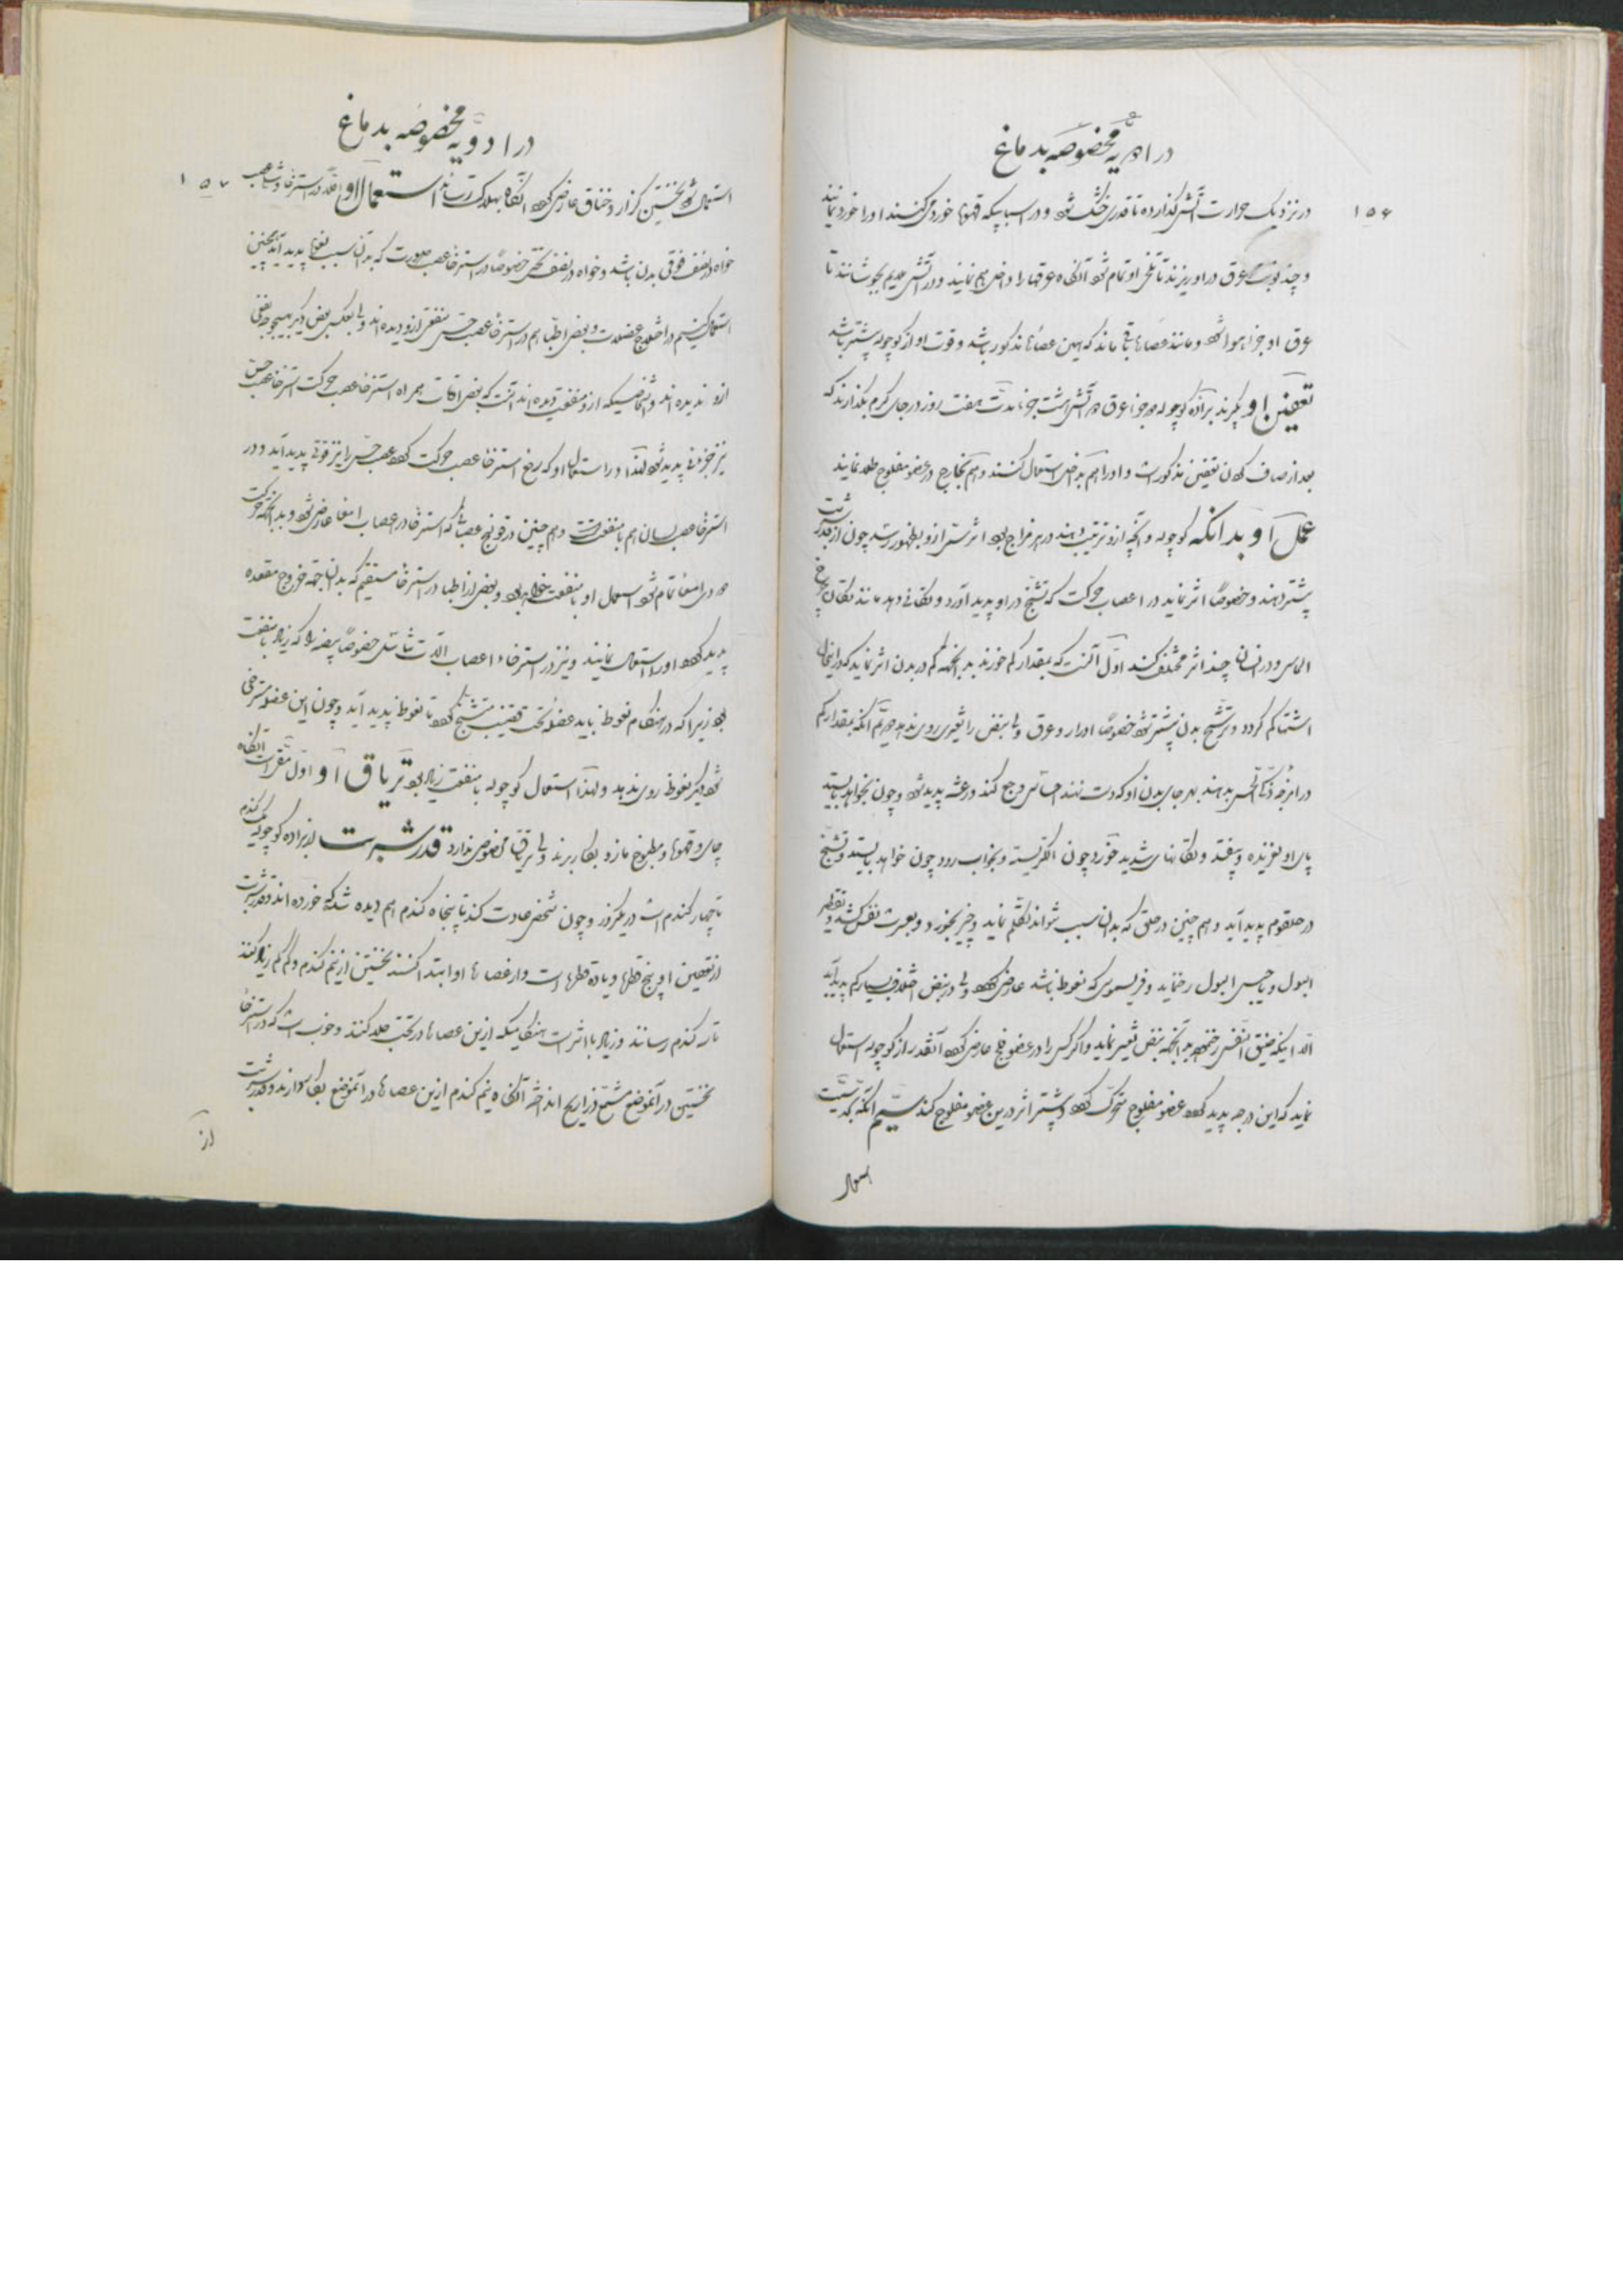 در ادویه مخصوصه بدماغ
۱۵۶
در نزدیک حرارت آتش گذارده تا قدری خشک شود و در اسبابیکه قهوها خورد می‌کنند او را خورد نمایند
و چند نوبت عرق در او ریزند تا تلخی او تمام شود آنگاه عرقها را داخل هم نمایند و در آتش ملایم بجوشانند تا
عرق او جزء هوا شود و مانند عصاره باقی ماند که همین عصاره مذکور باشد و قوت او از کوچوله بیشتر باشد
تعفین او بگیرند براده کوچوله جزء عرق آتشه هشت جزء مدت هفت روز در جای گرم بگذارند که
بعد از صاف کردن تعفین مذکور است و او را هم بداخل استعمال کنند و هم بخارج در عضو مفلوج طلا نمایند
عمل او بدانکه کوچوله و آنچه ازو ترتیب دهند در هر مزاج بود اثر سمی ازو بظهور رسد چون از قدر شربت
بیشتر دهند و خصوصا اثر نماید در اعصاب حرکت که تشنج در او پدید آورد و تکانی دهد مانند تکان چرخ
الماس و در انسان چند اثر مختلف کند اول آنست که بمقدار کم خورند بدانجهة کم در بدن اثر نماید که در اینحال
اشتها کم گردد و ترشح بدن بیشتر شود خصوصا ادرار و عرق ولی نبض را تغییری روی ندهد دویم آنکه بمقدار کم
در امزجه ذکی الحس بدهند بهر جای بدن او که دست نهند احساس وجع کند و رعشه پدید شود و چون بخواهد بایستد
پای او لغزیده و بیفتد و تکانهای شدید خورد چون الکتریسته و بخواب رود چون خواهد بایستد و تشنج
در حلقوم پدید آید و هم چنین در حلق که بدان سبب نتواند تکلم نماید و چیز بخورد و بعسرت نفس کشد و تقطیر
البول و یا حبس البول رخ نماید و فریسموس که نعوظ باشد عارض گردد ولی در نبض اختلاف بسیار کم پدید آید
الا اینکه ضیق النفس رخ دهد بدانجهة نبض تغییر نماید و اگر کسی را در عضو فلج عارض گردد آنقدر از کوچوله استعمال
نماید که این درجه پدید گردد عضو مفلوج متحرک گردد و بیشتر اثر در این عضو مفلوج کند سیم آنکه بکمیت
استعمال
در ادویه مخصوصه بدماغ
۱۵۷
استعمال شود نخستین کزاز و خناق عارض گردد آنگاه بهلاکت رساند استعمال او اولا در استرخاء عصب
خواه در نصف فوقی بدن باشد و خواه در نصف تحتی خصوصا در استرخاء عصب صورت که بدان سبب لقوه پدید آید همچنین
استعمال کنیم در اختلاج عضلات و بعضی اطبا هم در استرخاء عصب حس منفعتی ازو دیده‌اند ولی بعکس بعض دیگر بهیچوجه نفعی
ازو ندیده‌اند و اشخاصیکه ازو منفعت دیده‌اند آنست که بعض اوقات همراه استرخاء عصب حرکت استرخاء عصب حس
نیز جزئی پدید شود لهذا در استعمال او که رفع استرخاء عصب حرکت گردد عصب حس را نیز قوتی پدید آید و در
استرخاء عصب لسان هم با منفعت است و هم چنین در قولنج عصبانی که استرخاء در اعصاب امعا عارض شود و بدانجهة حرکت
امعا تمام شود استعمال او با منفعت خواهد بود و بعض از اطبا در استرخاء مستقیم که بدان جهة خروج مقعده
پدید گردد او را استعمال نمایند و نیز در استرخاء اعصاب آلات تناسل خصوصا بیضه را که زیاد با منفعت
بود زیرا که در هنگام نعوظ باید عضله تحت قضیب متشنج گردد تا نعوظ پدید آید و چون این عضله مسترخی
شود دیگر نعوظ روی ندهد و لهذا استعمال کوچوله با منفعت زیاد بود تریاق او اول مقیئات آنگاه
چای و قهوها و مطبوخ مازو بکار برند ولی تریاق مخصوص ندارد قدر شربت از براده کوچوله یک گندم
تا چهار گندم است در یکروز و چون شخص عادت کند تا پنجاه گندم هم دیده شده که خورده‌اند و قدر شربت
از تعفین او پنج قطره و یا ده قطره است و از عصاره او ابتدا کنند نخستین از نیم گندم و کم کم زیاد کنند
تا سه گندم رسانند و زیاد با اثر است هنگامیکه ازین عصاره در تحت جلد کنند و خوب است که در استرخاء
نخستین در آنموضع مشمع ذراریح انداخته آنگاه نیم گندم ازین عصاره در آنموضع بکار دارند و قدر شربت
از